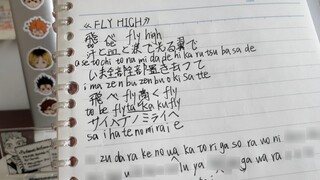 《FLY HIGH》
飛べ fly high
汗と血と涙で光る翼で
a se to chi to na mi da de hi ka ru tsu ba sa de
いま全部全部置き去って
i ma ze n bu zo n bu o ki sa tte
飛べ fly 高く fly
to be fly ta ka ku fly
サイハテノミライヘ
sa i ha te no mi ra i e
zu da ra ke no u ka to ri ga so ra wo ni
u lu ya ga wa ra